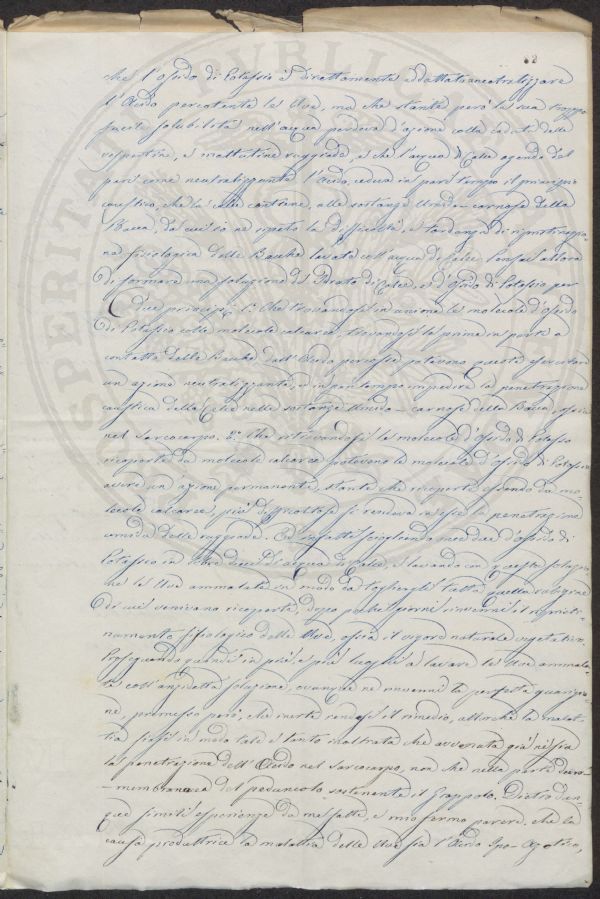 82
che l'ossido di Potassio è direttamente addattato a neutralizzare
l'Acido percotente le Uve, ma che stante però la sua troppo
facile solubilità nell'acqua perdeva d'azione colla caduta delle
vespertine, e mattutine ruggiade, e che l'acqua di Calce agendo del
pari come neutralizzante l'Acido, cedeva in pari tempo il principio
caustico, che la calce contiene, alle sostanze Umido-carnose della
Bacca, da cui ne ripeto la difficoltà, e tardanza di ripristinazio-
ne fisiologica delle Bacche lavate coll'acqua di Calce, pensai allora
di formare una soluzione di di Calce, e d'Ossido di Potassio per
due principj. 1.° Che trovandosi in unione le molecole d'ossido
di Potassio colle molecole calcaree, trovandosi le prime in parte a
contatto delle Bacche dall'Acido percosse potevano queste esercitare
un azione neutralizzante, ed in pari tempo impedire la penetrazione
caustica della Calce nelle sostanze Umido-carnose della Bacca, ossia
nel Sarcocarpo. 2.° Che ritrovandosi le molecole d'ossido di Potassio
ricoperte da molecole calcaree potevano le molecole d'ossido di Potassio
avere un azione permanente, stante che ricoperte essendo da mo-
lecole calcaree, più difficoltosa si rendeva in esse la penetrazione
umida delle ruggiade. Ed infatti sciogliendo once due d'ossido di
Potassio in libre dieci d'acqua di calce, e lavando con questa soluzio-
ne le Uve ammalate in modo da toglierli tutta quella rubigine
di cui venivano ricoperte, dopo pochi giorni rinvenni il ripristi-
namento fisiologico delle Uve, ossia il vigore naturale vegetativo.
Proseguendo quindi in più, e più luoghi a lavare le Uve ammala-
te coll'anzidetta soluzione, ovunque ne rinvenni la perfetta guarigio-
ne, premesso però, che inerte rendesi il rimedio, allorchè la malat-
tia siasi in modo tale e tanto inoltrata che avvenuta già ne sia
la penetrazione dell'Acido nel sarcocarpo, non che nella parte
-membranacea del peduncolo sostenente il Grappolo. Dietro dun-
que simili esperienze da me fatte, è mio fermo parere, che la
causa produttrice la malattia delle Uve sia l'Acido Ipo-Azotico,